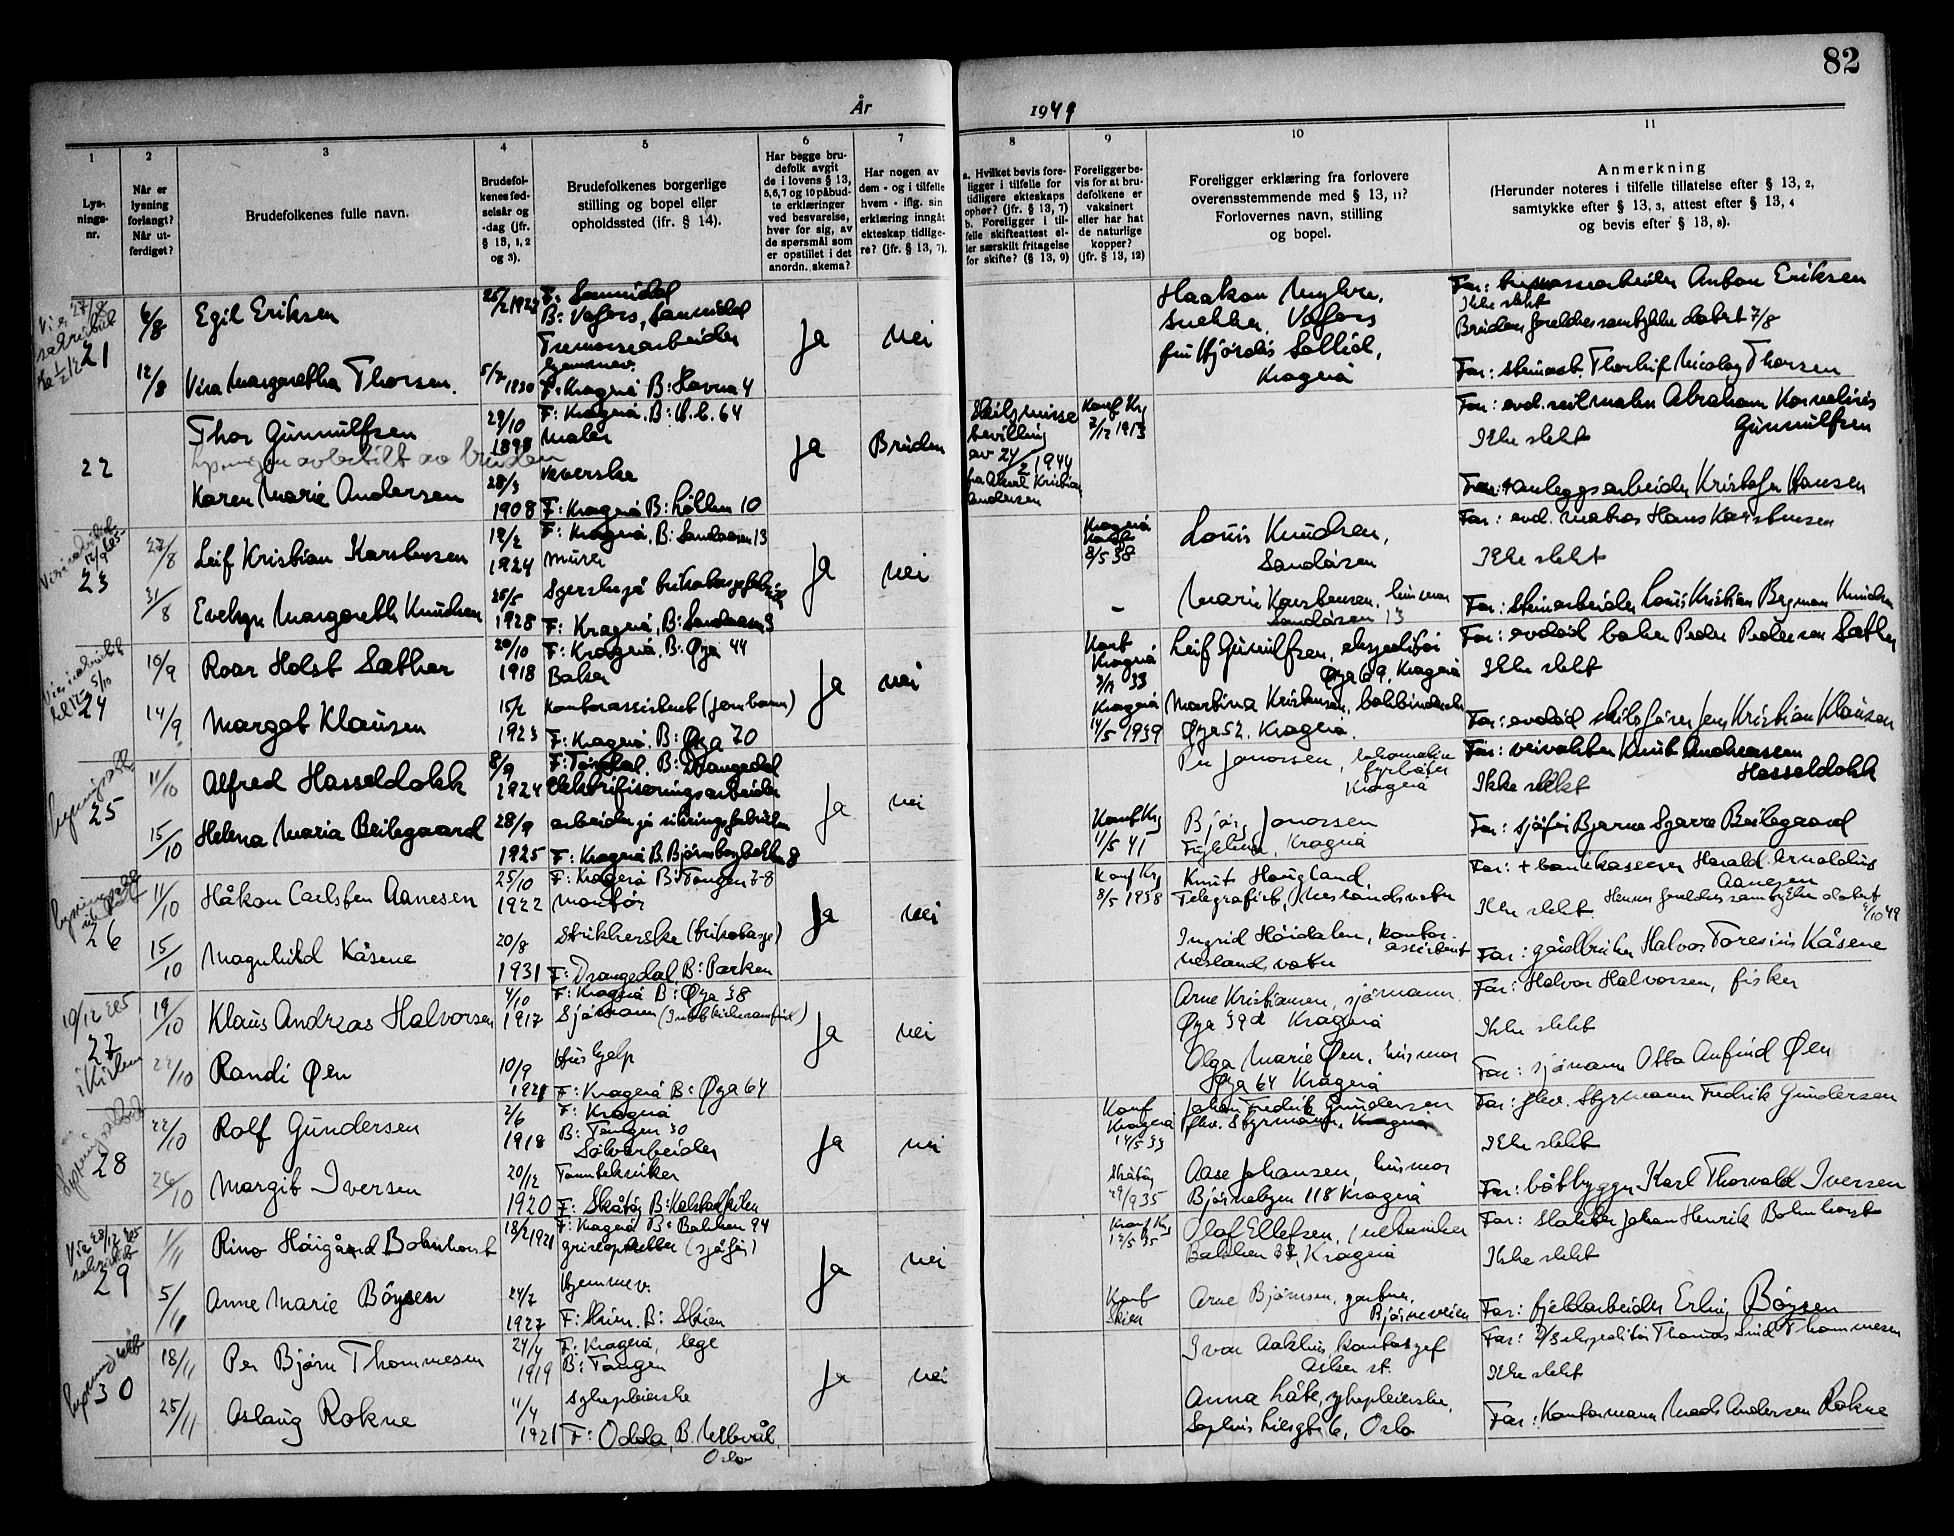 82
År
1949
1
2
3
4
5
6
7
8
9
10
11
Lys-
nings-
nr.
Når er
lysning
forlangt?
Når ut-
ferdiget?
Brudefolkenes fulle navn.
Brudefol-
kenes fød-
selsår og
-dag (jfr.
§ 13, 1, 2
og 3).
Brudefolkenes borgerlige
stilling og bopel eller
opholdssted (jfr. § 14).
Har begge bru-
defolk avgit
de i lovens § 13,
5,6,7 og 10 påbud-
te erklæringer
ved besvarelse,
hver for sig, av
de spørsmål som
er opstillet i det
anordn. skema?
Har nogen av
dem - og i tilfelle
hvem - iflg. sin
erklæring inngåt
ekteskap tidlige-
re? (jfr. § 13, 7).
a. Hvilket bevis fore-
ligger i tilfelle for
tidligere ekteskaps
ophør? (jfr. § 13, 7)
b. Foreligger i til-
felle skifteattest el-
ler særskilt fritagelse
for skifte? (§ 13, 9)
Foreligger be-
vis for at bru-
defolkene er
vaksinert
eller har hat
de naturlige
kopper?
(jfr. § 13, 12)
Foreligger erklæring fra forlovere
overensstemmende med § 13, 11?
Forlovernes navn, stilling
og bopel.
Anmerkning
(Herunder noteres i tilfelle tillatelse efter § 13, 2,
samtykke efter § 13, 3, attest efter § 13, 4
og bevis efter § 13, 8).
21
6/8
Egil Eriksen
F: Sannidal
B: Vafoss, Sannidal
Tremassearbeider
Ja
nei
Haakon
Snekker, Vafoss
Far: Anton Eriksen
Ikke slekt
12/8
Margaretha Thorsen.
5/7 1930
F: Kragerø B: Havna 4
fru Hjørdis Sollid,
Kragerø
Far: Thorleif Nicolay Thorsen
22
Thor Gunnulfsen
29/10
1898
F: Kragerø. B: 64
Maler
Ja
Bruden
Skilsmisse
bevilling
av 24/2 1944
fra Aksel Kristian
Andersen
Konf Kr
2/12 1913
Far: avd. seilmaker Abraham Kornelius
Gunnulfsen
Ikke slekt
lysningen avbestilt av bruden
Karen Marie Andersen
28/3
1908
Veverske
F: Kragerø B: Løkken 10
Far: anleggsarbeider Kristofer Hansen
23
27/8
Leif Kristian Karstensen
12/2
1924
F: Kragerø, B: Sandaasen 13
murer
Ja
nei
Kragerø
8/5 38
Louis Knudsen,
Sandåsen
Far: avd. matros Hans Karstensen
Ikke slekt
31/8
Evelyn Margareth Knudsen
25/5
1928
Syerske på trikotasjefabrikk
F: Kragerø, B: Sandaasen 3
–
Marie Karstensen, husmor
Sandåsen 13
Far: Steinarbeider Louis Kristian Bergman Knudsen
24
10/9
Roar Holst Sæther
20/10
1918
F: Kragerø. B: Øya 44
Baker
Ja
nei
Konf
Kragerø
Leif Gunnulfsen, ekspeditør
Øya 69, Kragerø
Far: avdød baker Peder Pedersen Sæther
Ikke slekt
14/9
Margot Klausen
15/2
1923
Kontorassistent (jernbanen)
F: Kragerø. B: Øya 70
Kragerø
14/5 1939
Martina Kristensen, bokbinderske
Øya 52, Kragerø.
Far: avdød skibsfører Jens Kristian Klausen
25
11/10
Alfred Hasseldokk
8/9
1924
F: Tørdal. B: Drangedal
Elektrifiseringsarbeider
Ja
nei
Per Jonassen, lokomotiv
fyrbøter
Kragerø
Far: veivokter Knut Andreassen
Hasseldokk
Ikke slekt
15/10
Helena Maria Beilegaard
28/9
1925
arbeider på sikringsfabrikken
F: Kragerø B. Bjørnsborgbakken 8
Konf Kr
11/5 41
Bjørg Jonassen
Kragerø
Far: sjåfør Bjarne Beilegaard
26
11/10
Håkon Carlsten Aanesen
25/10
1922
F: Kragerø B: Tangen 7-8
Montør
Ja
nei
Konf Kr
8/5 1938
Knut Haugland
Telegrafist, Neslandsvatn
Far: + bankkasserer Harald Arnoldus
Aanesen
Ikke slekt
15/10
Magnhild Kåsene
20/8
1931
Strikkerske (trikotasje)
F: Drangedal B: Parken
Ingrid Høidalen, kontor-
assistent
Neslandsvatn
Far: gårdbruker Halvor Toresius Kåsene
27
i kirken
19/10
Klaus Andreas Halvorsen
4/10
1917
F: Kragerø B: Øya 38
Sjømann
Ja
nei
Arne Kristiansen, sjømann.
Øya 39d Kragerø
Far: Halvor Halvorsen, fisker
Ikke slekt
22/10
Randi Øen
10/9
1921
Hushjelp
F: Kragerø B: Øya 64
Olga Marie Øen, husmor
Øya 64 Kragerø
Far: sjømann Otto Anfind Øen
28
22/10
Rolf Gundersen
2/6
1918
F: Kragerø
B: Tangen 30
Sølvarbeider
Ja
nei
Konf
Kragerø
14/5 33
Johan Fredrik Gundersen
fhv. Styrmann, Kragerø
Far: fhv. Styrmann Fredrik Gundersen
Ikke slekt
26/10
Margit Iversen
20/12
1920
Tanntekniker
F: Skåtøy B: Kalstadkilen
Skåtøy
29/9 35
Aase Johansen, husmor
Bjørnebyen 118 Kragerø
Far: båtbygger Karl Thorvald Iversen
29
1/11
Rino Høigård Bohnhorst
18/2 1921
F: Kragerø B: Bakken 94
(sjåfør)
Ja
nei
Konf Kr
12/5 35
Olaf Ellefsen, mekaniker
Bakken 37, Kragerø
Far: Slakter Johan Henrik Bohnhorst
Ikke slekt
5/11
Anne Marie Bøysen
24/7
1927
Hjemmev.
F: Skien. B: Skien
Konf
Skien
Arne Bjørnsen, gartner,
Bjørneveien
Far: fjellarbeider Erling Bøysen
30
18/11
Per Bjørn Thommesen
24/4
1919
F: Kragerø, lege
B: Tangen
Ja
nei
Ivar kontorsjef
Asker st.
Far: ekspeditør Thomas Thommesen
Ikke slekt
25/11
Aslaug Rokne
11/4
1921
Sykepleierske
F: Odda B. Ullevål
Oslo
Anna Låte, sykepleierske,
Sophus Liesgt 6, Oslo
Far: Kontormann Mads Andersen Rokne